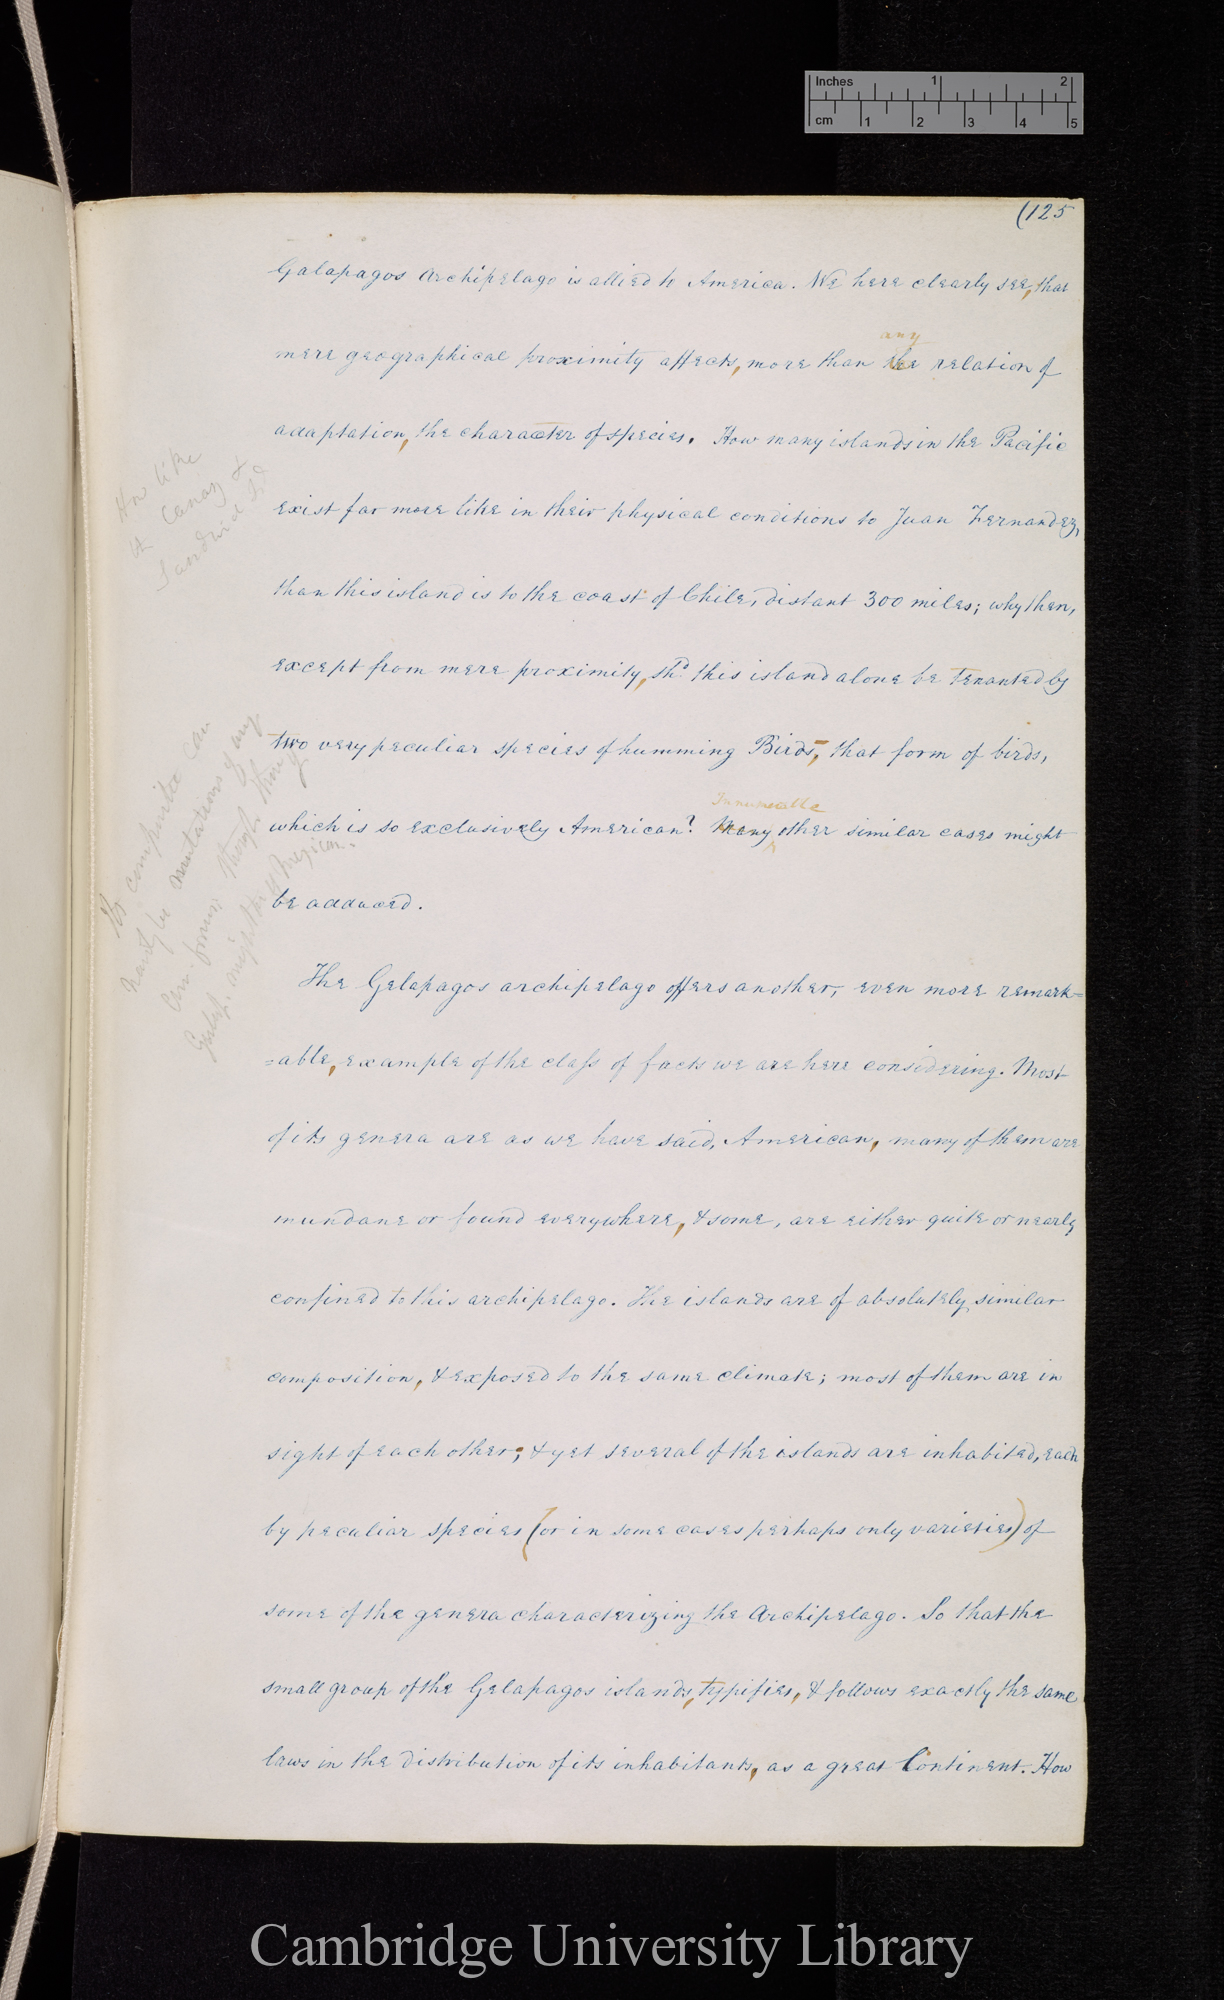 Inches 1 2
cm 1 2 3 4 5
(125
Galapagos Archipelago is allied to America. We here clearly see, that
any
mere geographical proximity affects, more than the relation of
adaptation, the character of species. How many islands in the Pacific
exist far more like in their physical conditions to Juan Fernandez,
than this island is to the coast of Chile, distant 300 miles; why then,
except from mere proximity, shd. this island alone be tenanted by
two very peculiar species of humming Birds, that form of birds,
Innumerable
which is so exclusively American? Many other similar cases might
be adduced.
The Gelapagos archipelago offers another, even more remark=
=able, example of the class of facts we are here considering. Most
of its genera are as we have said, American, many of them are
mundane or found everywhere, & some, are either quite or nearly
confined to this archipelago. The islands are of absolutely similar
composition, & exposed to the same climate; most of them are in
sight of each other; & yet several of the islands are inhabited, each
by peculiar species (or in some cases perhaps only varieties) of
some of the genera characterizing the Archipelago. So that the
small group of the Gelapagos islands, typifies, & follows exactly the same
laws in the distribution of its inhabitants, as a great Continent. How
like
Canary &
Sandwich
mutations of any
forms; though
might
Cambridge University Library